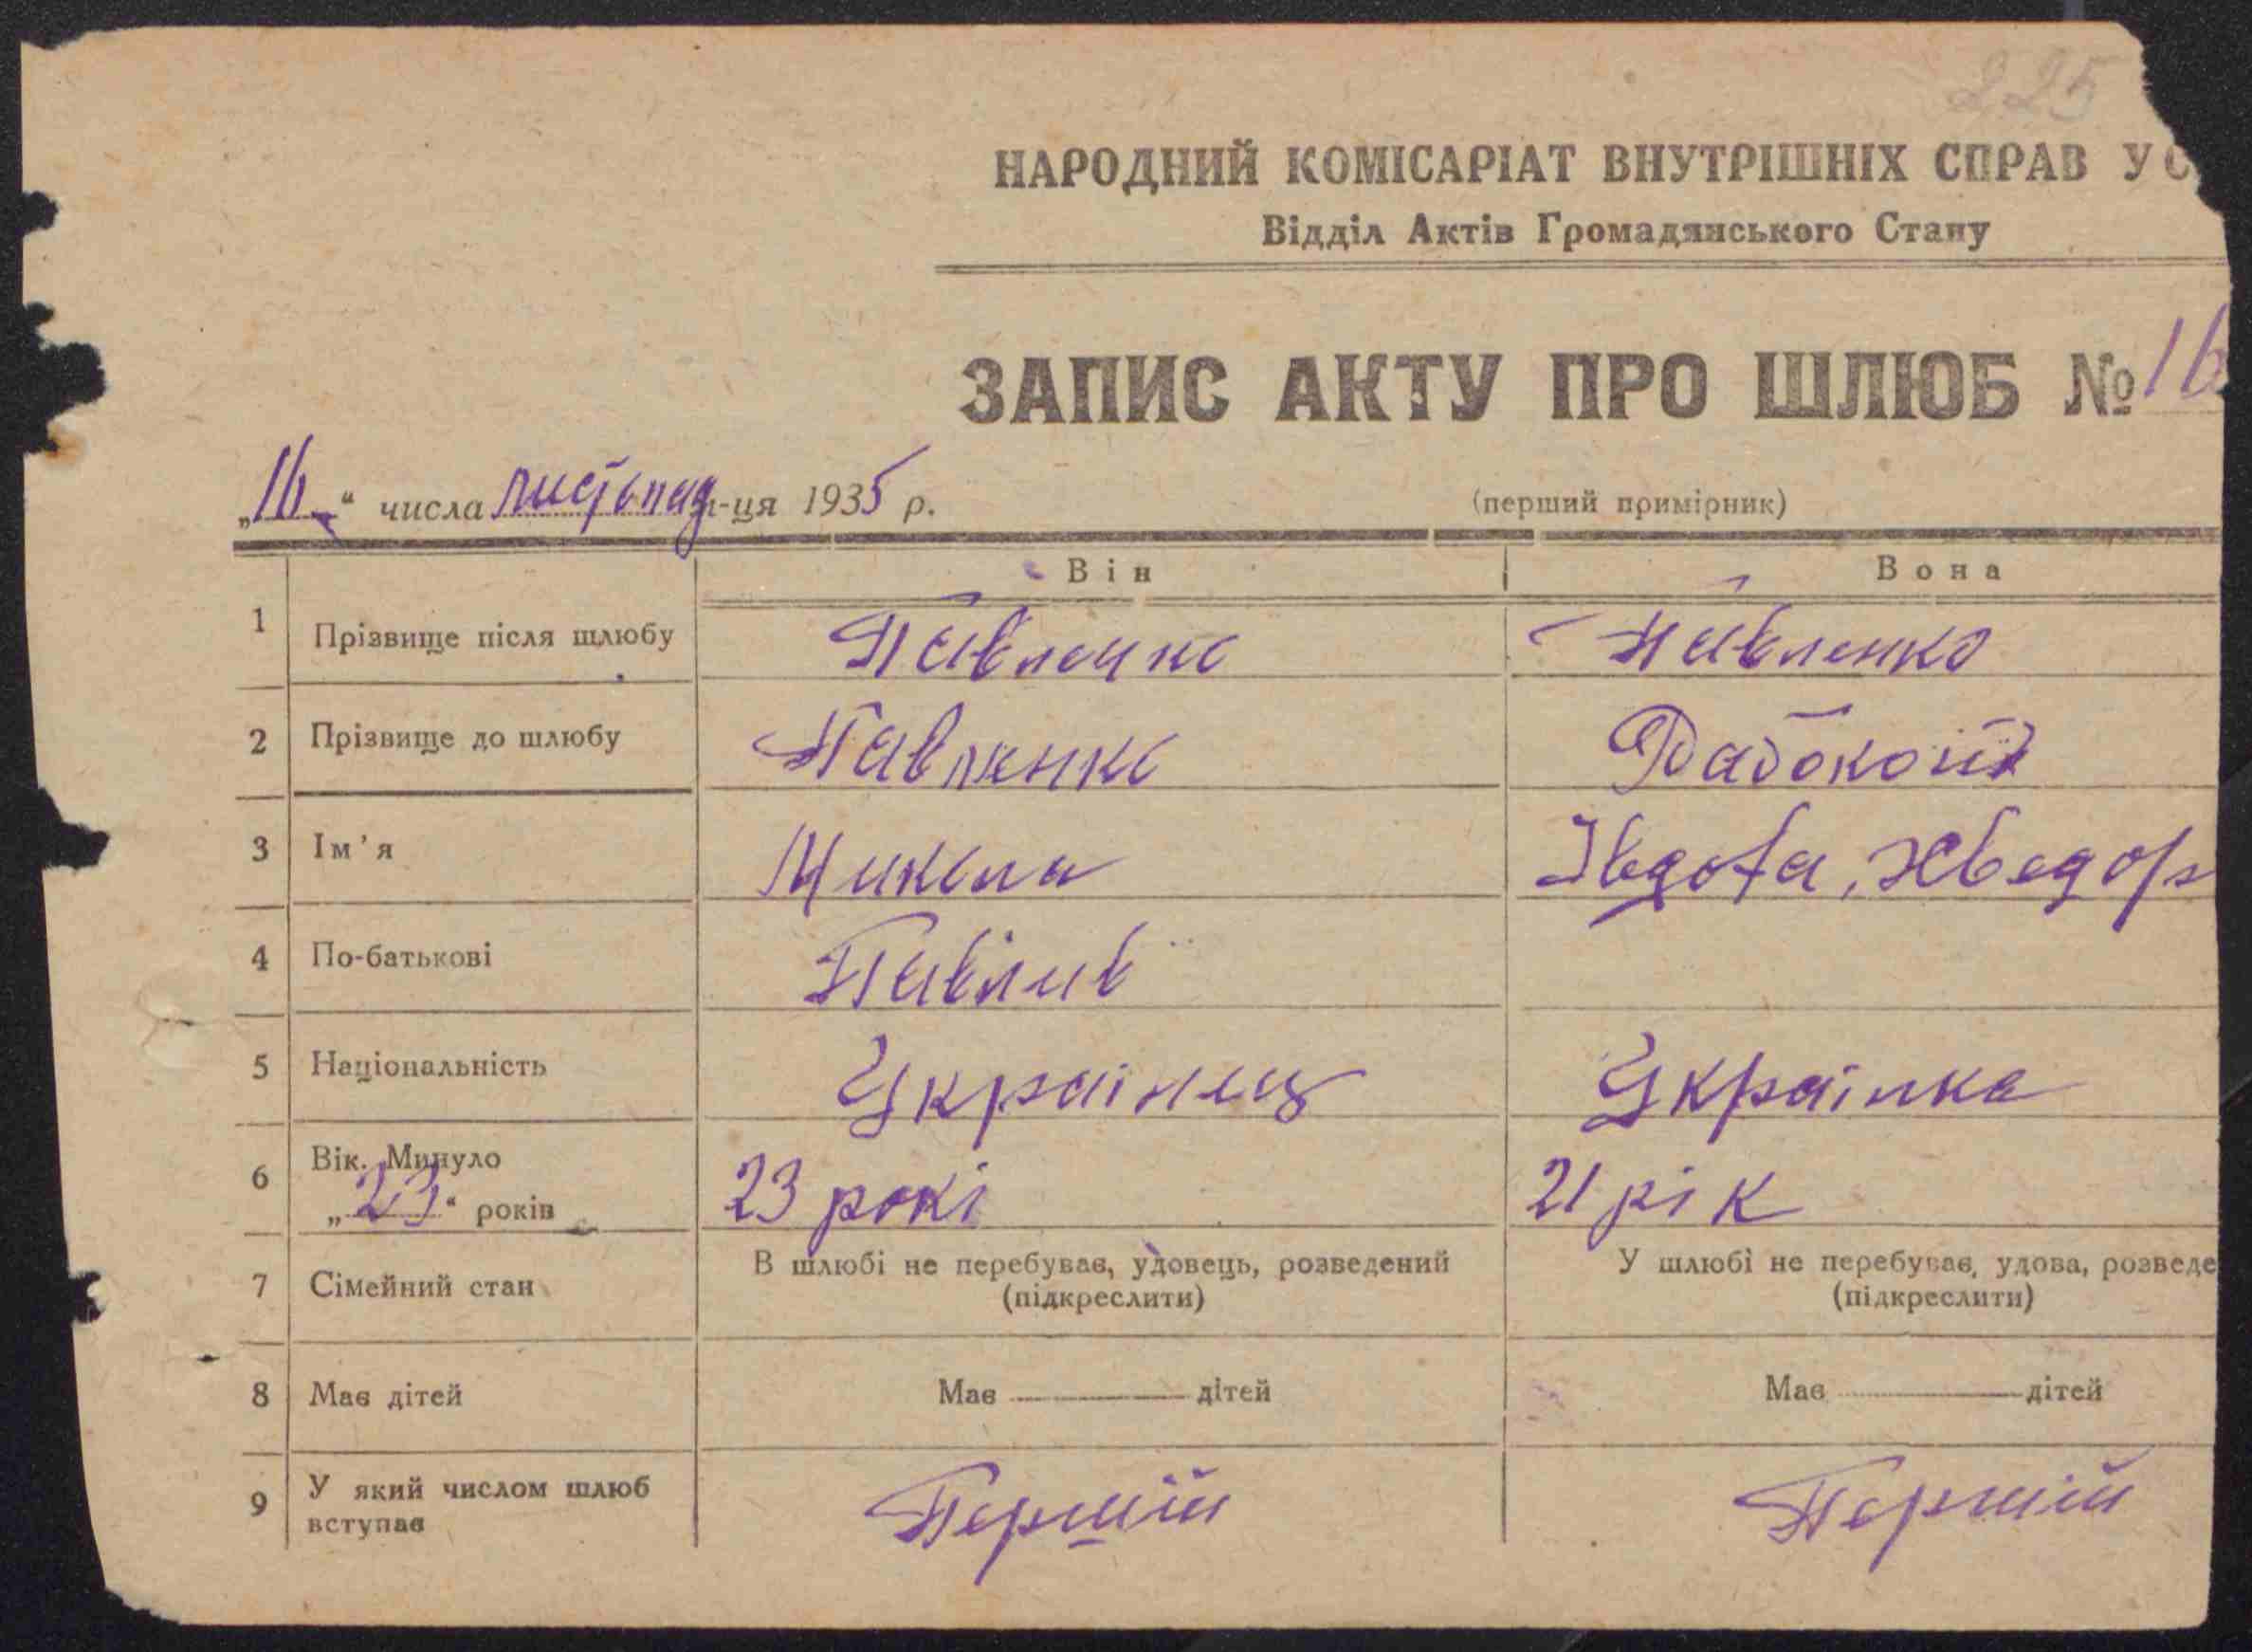 225
НАРОДНИЙ КОМІСАРІАТ ВНУТРІШНІХ СПРАВ УС
Відділ Актів Громадянського Стану
ЗАПИС АКТУ ПРО ШЛЮБ № 16
„16“ числа листопад м-ця 1935 р.
(перший примірник)
Він Вона
1 Прізвище після шлюбу Павленко Павленко
2 Прізвище до шлюбу Павленко
3 Ім'я Микола Явдоха, Хведор
4 По-батькові Павлив
5 Національність Українец Українка
6 Вік. Минуло
„23“ років 23 рокі 21 рік
7 Сімейний стан В шлюбі не перебував, удовець, розведений У шлюбі не перебував, удова, розведе
(підкреслити) (підкреслити)
8 Має дітей Має дітей Має дітей
9 У який числом шлюб Першій Першій
вступає